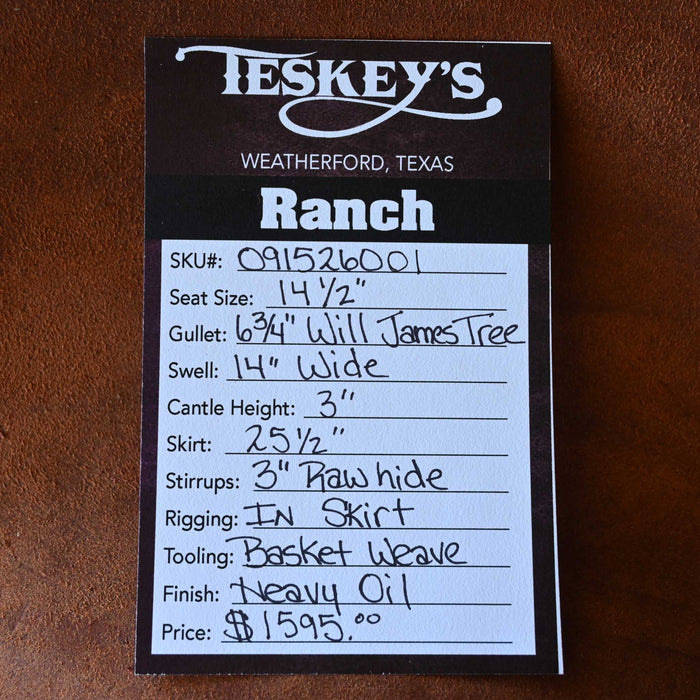 TESKEY'S
WEATHERFORD, TEXAS
Ranch
SKU#: 091526001
Seat Size: 14 1/2"
Gullet: 6 3/4" Will James Tree
Swell: 14" Wide
Cantle Height: 3"
Skirt: 25 1/2"
Stirrups: 3" Rawhide
Rigging: IN Skirt
Tooling: Basket Weave
Finish: Heavy Oil
Price: $1595.00